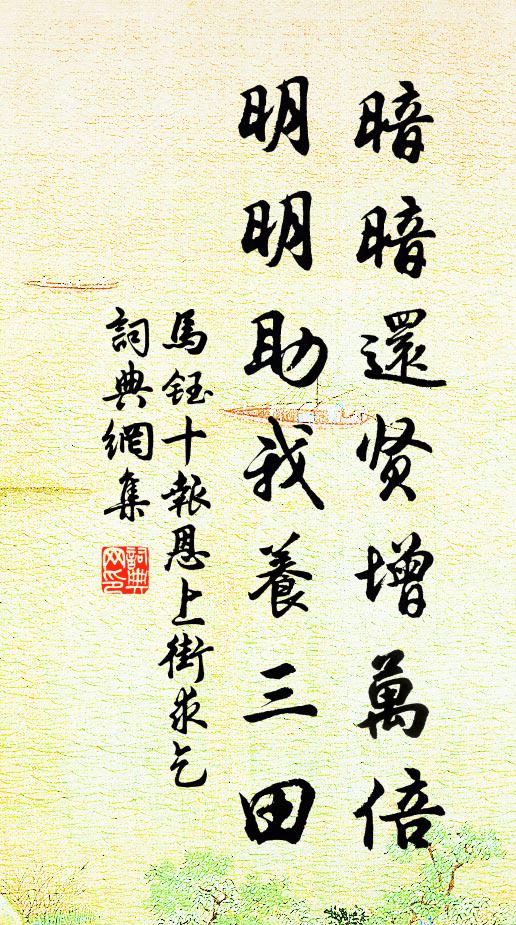 暗暗還贤增萬倍
明明助我養三田
馬鈺十報恩上街求乞
詞典網集
詞典网印